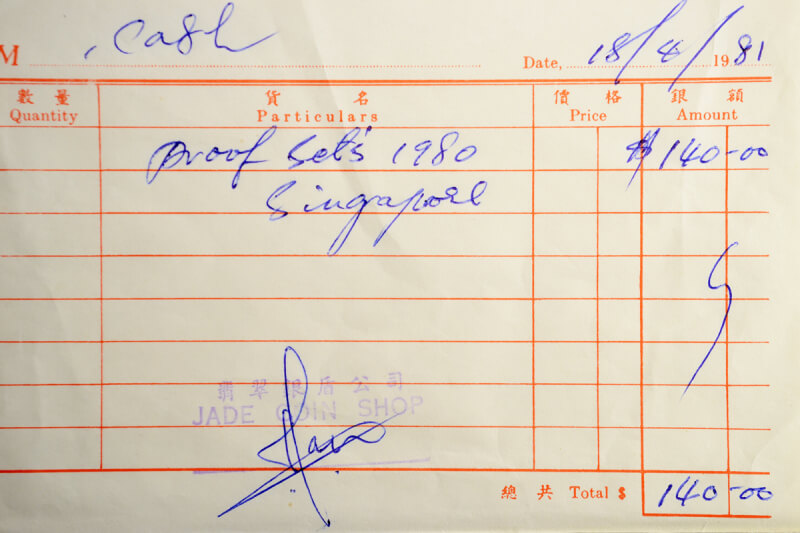 M Cash Date, 18/4/1981
數量 貨名 價格 銀額
Quantity Particulars Price Amount
Proof Set's 1980 $ 140-00
Singapore
翡翠銀盾公司
JADE COIN SHOP
總共 Total $ 140-00